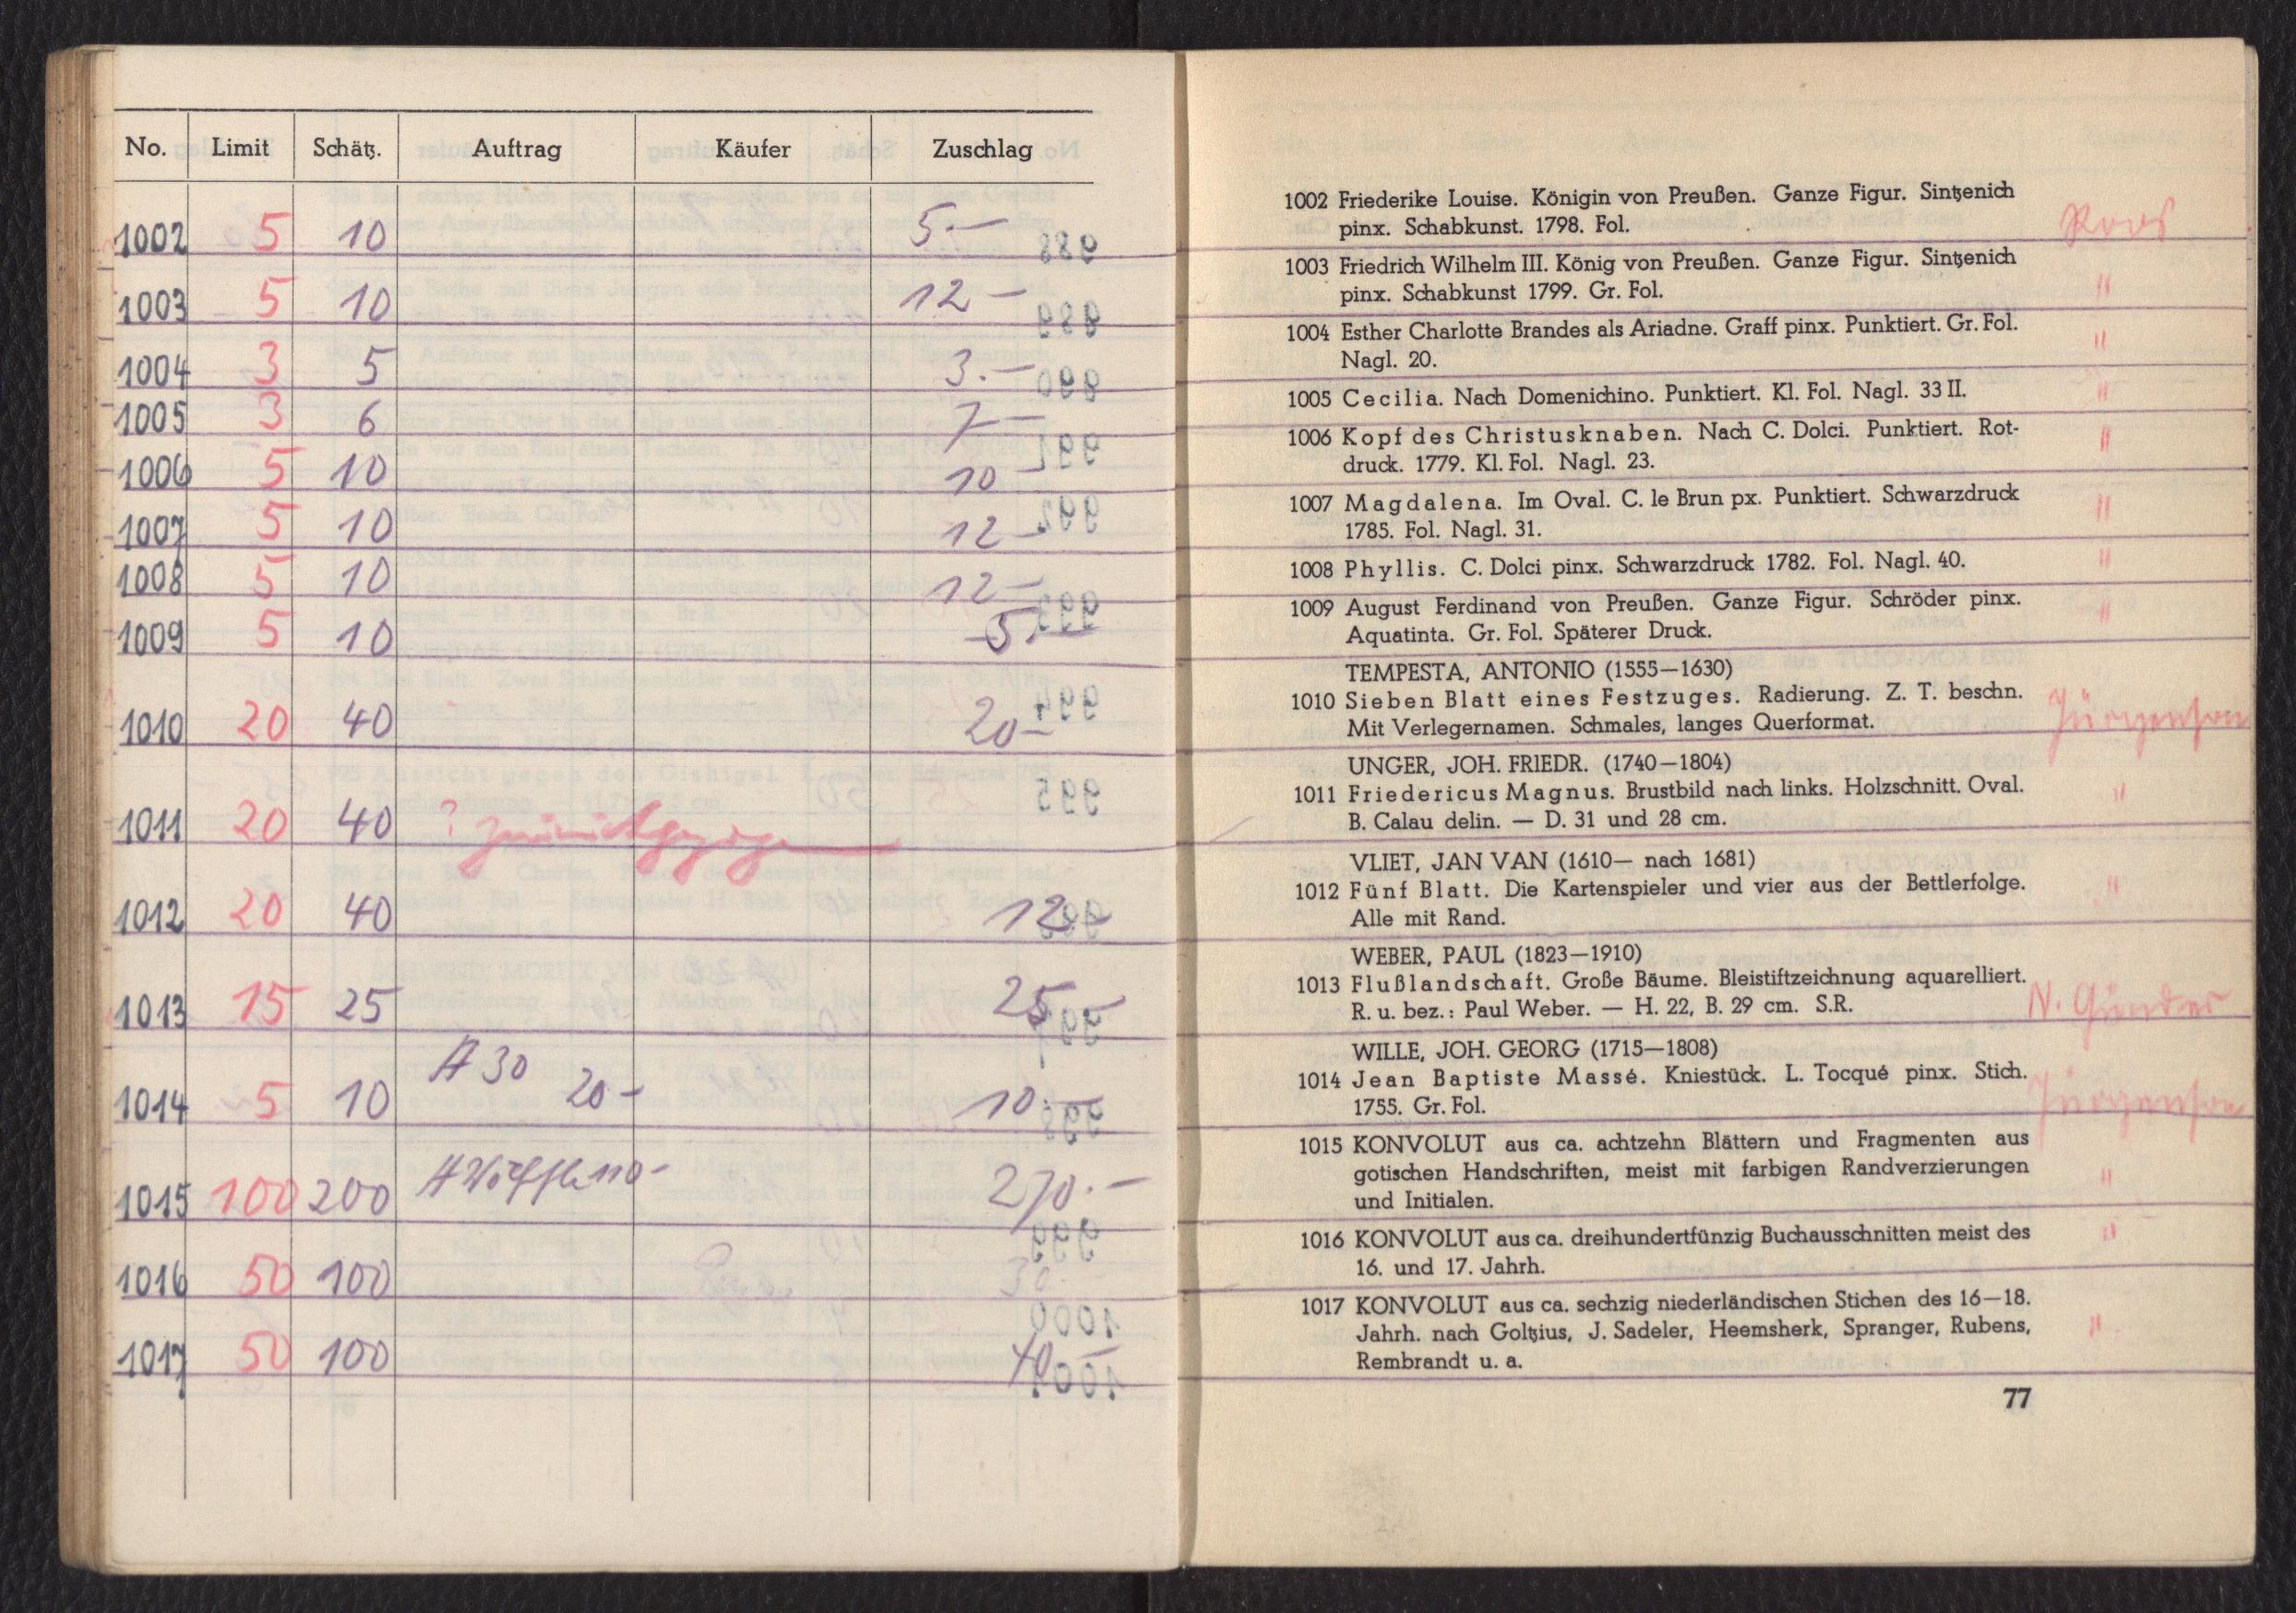 No. Limit Schätz. Auftrag Käufer Zuschlag
1002 5 10 5.–
1003 5 10 12 –
1004 3 5 3.–
1005 3 6 7 –
1006 5 10 10
1007 5 10 12 –
1008 5 10 12 –
1009 5 10 5.–
1010 20 40 20 –
1011 20 40 ? zurückgezogen
1012 20 40 12 –
1013 15 25 25 –
A 30
1014 5 10 20 – 10.–
1015 100 200 110 – 270.–
1016 50 100 30.–
1017 50 100 40 –
1002 Friederike Louise. Königin von Preußen. Ganze Figur. Sintzenich
pinx. Schabkunst. 1798. Fol. Roos
1003 Friedrich Wilhelm III. König von Preußen. Ganze Figur. Sintzenich
pinx. Schabkunst 1799. Gr. Fol. "
1004 Esther Charlotte Brandes als Ariadne. Graff pinx. Punktiert. Gr. Fol. "
Nagl. 20.
1005 Cecilia. Nach Domenichino. Punktiert. Kl. Fol. Nagl. 33 II. "
1006 Kopf des Christusknaben. Nach C. Dolci. Punktiert. Rot- "
druck. 1779. Kl. Fol. Nagl. 23.
1007 Magdalena. Im Oval. C. le Brun px. Punktiert. Schwarzdruck "
1785. Fol. Nagl. 31.
1008 Phyllis. C. Dolci pinx. Schwarzdruck 1782. Fol. Nagl. 40. "
1009 August Ferdinand von Preußen. Ganze Figur. Schröder pinx. "
Aquatinta. Gr. Fol. Späterer Druck.
TEMPESTA, ANTONIO (1555—1630)
1010 Sieben Blatt eines Festzuges. Radierung. Z. T. beschn. Jürgenson
Mit Verlegernamen. Schmales, langes Querformat.
UNGER, JOH. FRIEDR. (1740—1804)
1011 Friedericus Magnus. Brustbild nach links. Holzschnitt. Oval. "
B. Calau delin. — D. 31 und 28 cm.
VLIET, JAN VAN (1610— nach 1681)
1012 Fünf Blatt. Die Kartenspieler und vier aus der Bettlerfolge. "
Alle mit Rand.
WEBER, PAUL (1823—1910)
1013 Flußlandschaft. Große Bäume. Bleistiftzeichnung aquarelliert.
R. u. bez.: Paul Weber. — H. 22, B. 29 cm. S.R. N. Günder
WILLE, JOH. GEORG (1715—1808)
1014 Jean Baptiste Massé. Kniestück. L. Tocqué pinx. Stich.
1755. Gr. Fol. Jürgenson
1015 KONVOLUT aus ca. achtzehn Blättern und Fragmenten aus
gotischen Handschriften, meist mit farbigen Randverzierungen "
und Initialen.
1016 KONVOLUT aus ca. dreihundertfünzig Buchausschnitten meist des "
16. und 17. Jahrh.
1017 KONVOLUT aus ca. sechzig niederländischen Stichen des 16—18.
Jahrh. nach Goltzius, J. Sadeler, Heemsherk, Spranger, Rubens, "
Rembrandt u. a.
77